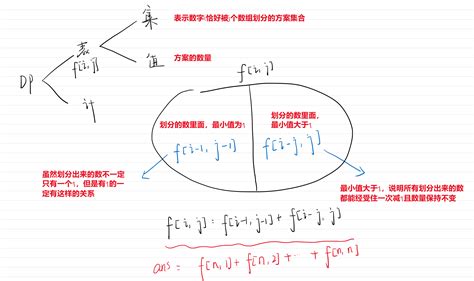 集
表示数字i恰好被j个数组划分的方案集合
表
f[i,j]
值
方案的数量
DP
计
f[i,j]
划分的数里面，最小值为1
划分的数里面，
最小值大于1
f[i-1, j-1]
f[i-j, j]
虽然划分出来的数不一定
只有一个1，但是有1的一
定有这样的关系
最小值大于1，说明所有划分出来的数
都能经受住一次减1且数量保持不变
f[i,j] = f[i-1, j-1] + f[i-j, j]
ans = f[n,1] + f[n,2] + ... + f[n,n]